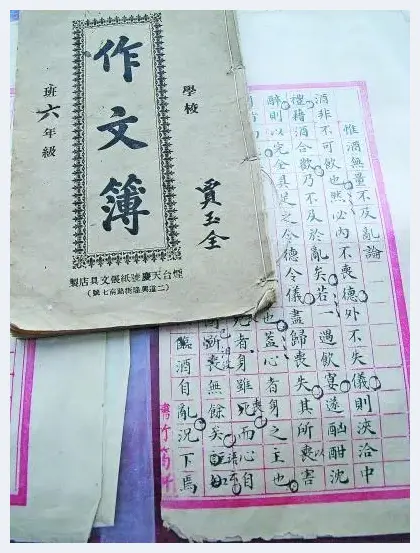 學校
作文簿
班六年級
賈玉全
煙台天慶號紙張文具店製
(二道興隆街路南七號)
惟酒無量不反亂論
酒非不可飲也然必內不喪德外不失儀則浹洽中
禮藉酒合歡乃不反於亂矣若一過飲宴遂酗酣沈
醉則以完全具足之令德令儀盡歸喪失其所喪以害
也蓋心者身之主也
死者身雖死而心自
斷喪無餘矣
酒自亂況下焉